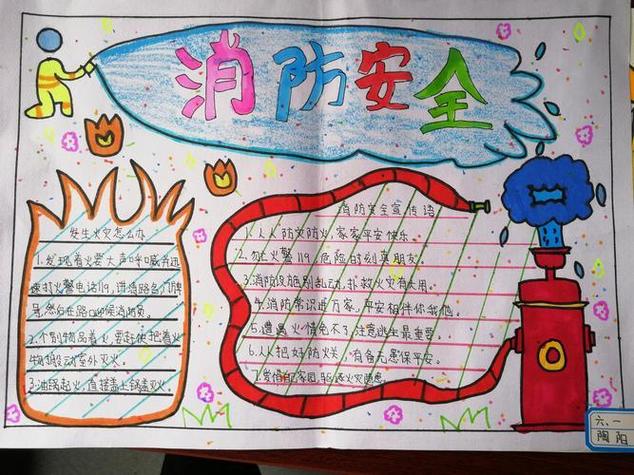 消防安全
发生火灾怎么办
1.发现着火要大声呼喊并迅
速打火警电话119,讲清路名门牌
号,然后在路口迎候消防员。
2.个别物品着火,要赶快把着火
物搬动室外灭火。
3.油锅起火,直接盖上锅盖灭火。
消防安全宣传语
1.人人防火,家家平安快乐
2.火警119,危险时刻真朋友。
3.消防设施别乱动,扑救火灾有大用。
4.消防常识进万家,平安相伴你我他。
5.遭遇火情免不了,注意逃生最重要。
6.人人把好防火关,有备无患保平安。
7.家园,火灾隐患
六、一
陶阳